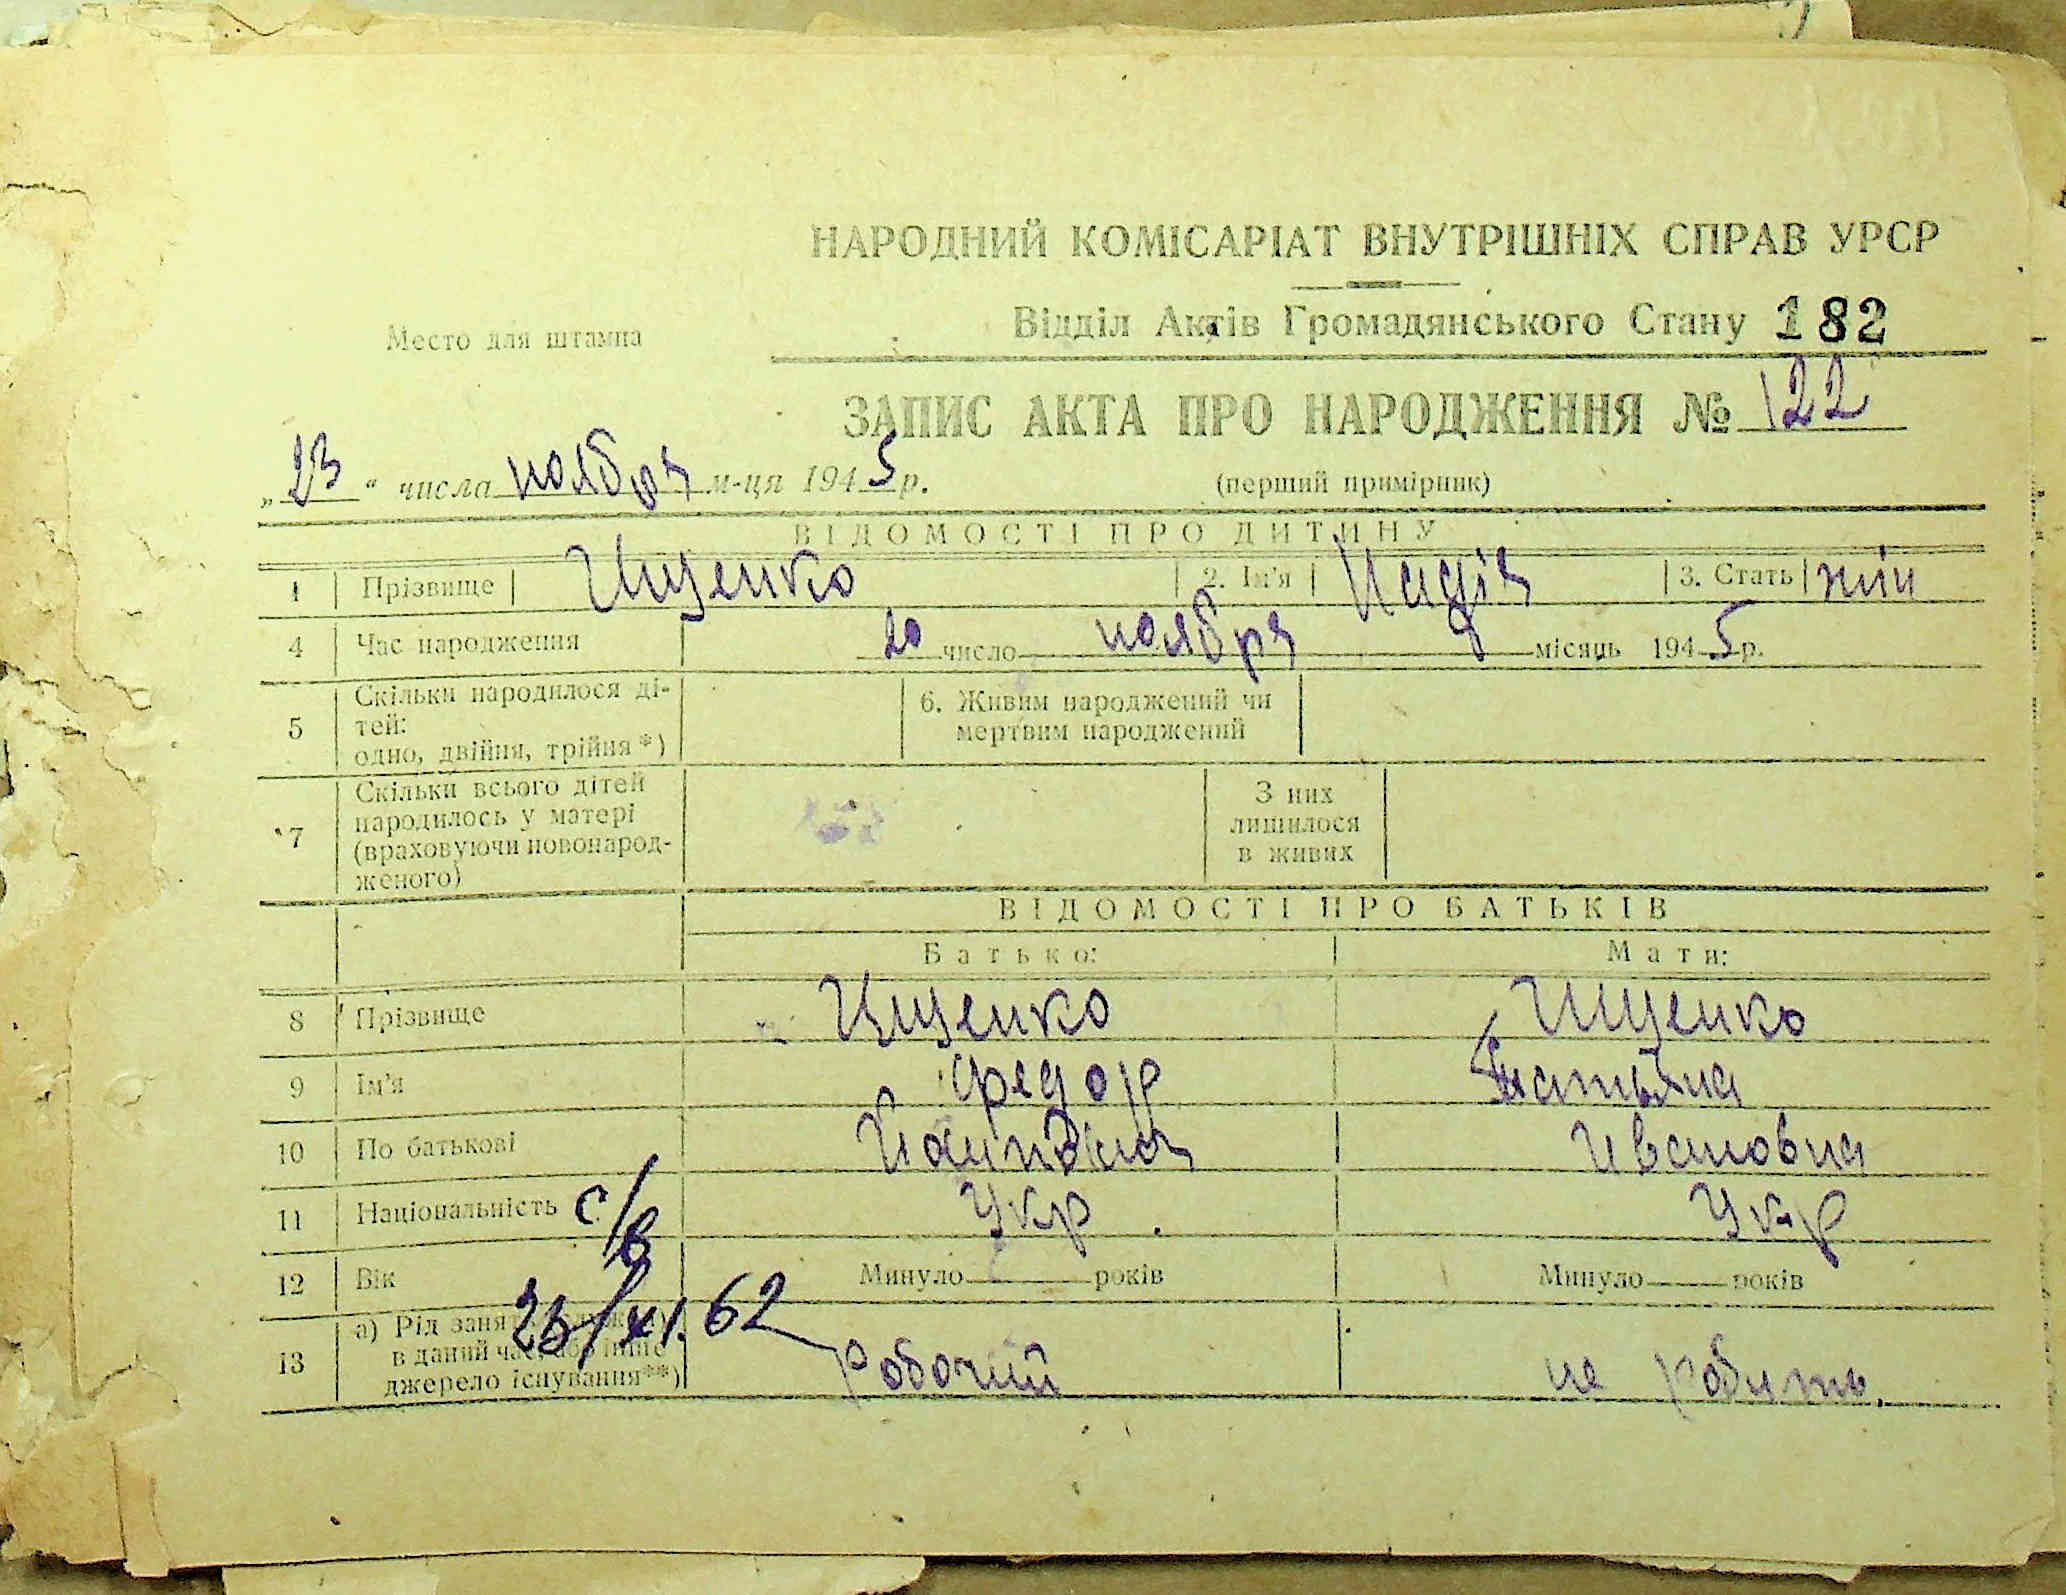 НАРОДНИЙ КОМІСАРІАТ ВНУТРІШНІХ СПРАВ УРСР
Место для штампа
Відділ Актів Громадянського Стану 182
ЗАПИС АКТА ПРО НАРОДЖЕННЯ № 122
„23“ числа ноября м-ця 1945 р.
(перший примірник)
ВІДОМОСТІ ПРО ДИТИНУ
1 Прізвище Ищенко 2. Ім'я Надія 3. Стать жін
4 Час народження 20 число ноября місяць 1945 р.
5 Скільки народилося ді-
тей:
одно, двійня, трійня *)
6. Живим народжений чи
мертвим народжений
7 Скільки всього дітей
народилось у матері
(враховуючи новонарод-
женого)
З них
лишилося
в живих
ВІДОМОСТІ ПРО БАТЬКІВ
Батько: Мати:
8 Прізвище Ищенко Ищенко
9 Ім'я Федор Татьяна
10 По батькові Ивановна
11 Національність с/в Укр Укр
12 Вік Минуло років Минуло років
23/XI.62
13 а) Рід
в даний
джерело існування**)
Робочий не робить.